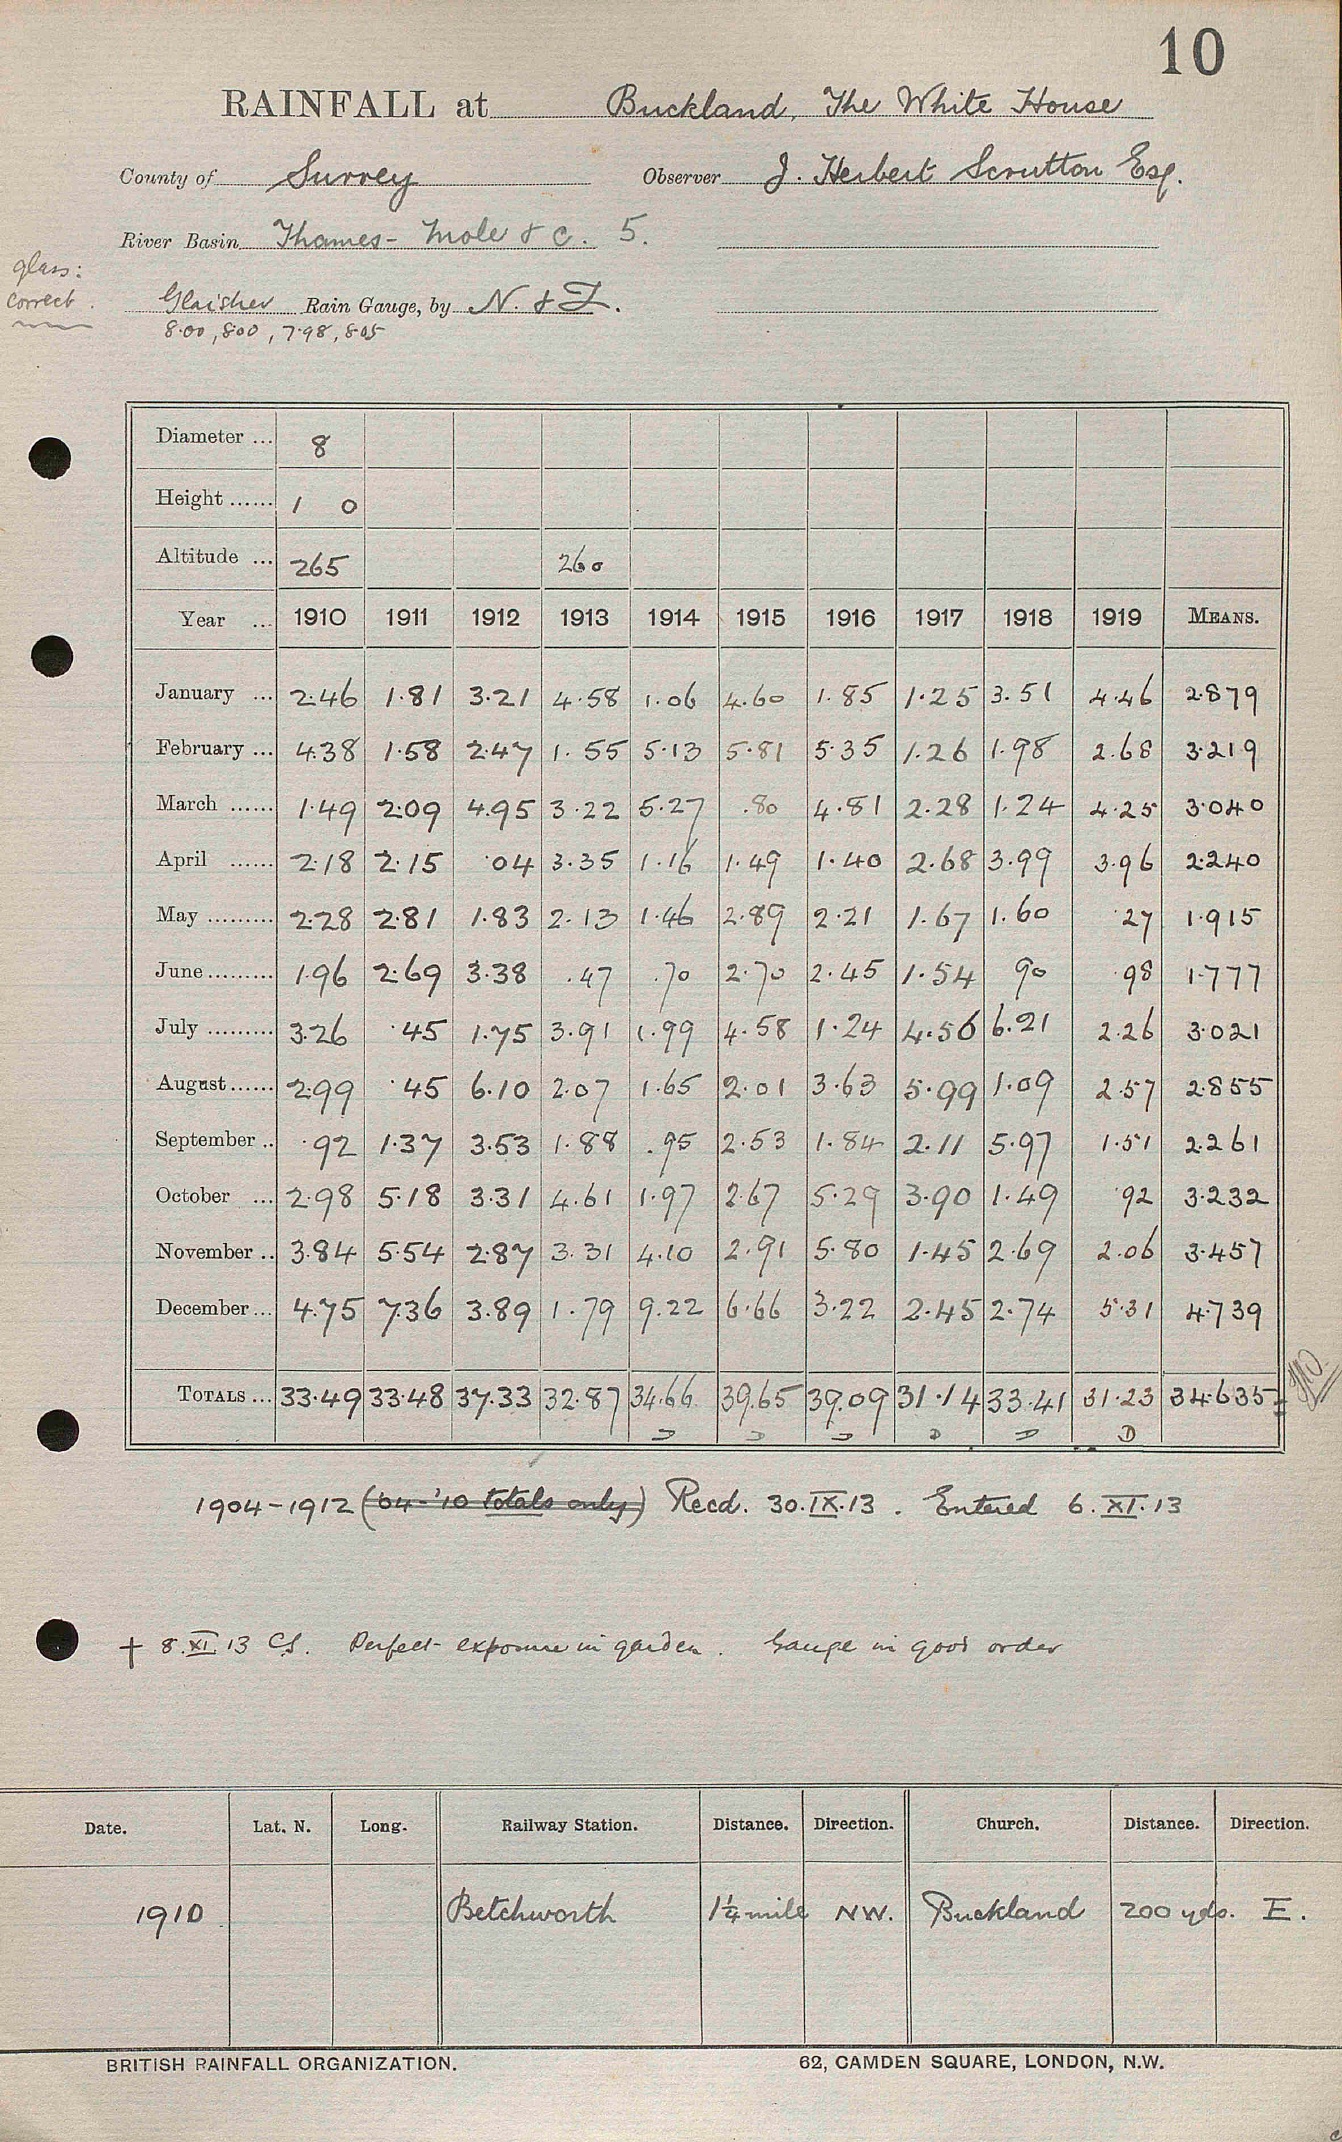 10
RAINFALL at Buckland, The White House
County of Surrey Observer J. Herbert Scrutton Esq.
River Basin Thames - Mole & c. 5.
glass:
correct.
Glaisher Rain Gauge, by N. & Z.
8.00, 8.00, 7.98, 8.05
Diameter ... 8
Height ...... 1 0
Altitude ... 265 260
Year ... 1910 1911 1912 1913 1914 1915 1916 1917 1918 1919 MEANS.
January ... 2.46 1.81 3.21 4.58 1.06 4.60 1.85 1.25 3.51 4.46 2.879
February ... 4.38 1.58 2.47 1.55 5.13 5.81 5.35 1.26 1.98 2.68 3.219
March ...... 1.49 2.09 4.95 3.22 5.27 .80 4.81 2.28 1.24 4.25 3.040
April ...... 2.18 2.15 .04 3.35 1.16 1.49 1.40 2.68 3.99 3.96 2.240
May ......... 2.28 2.81 1.83 2.13 1.46 2.89 2.21 1.67 1.60 .27 1.915
June ......... 1.96 2.69 3.38 .47 .70 2.70 2.45 1.54 90 .98 1.777
July ......... 3.26 .45 1.75 3.91 1.99 4.58 1.24 4.56 6.21 2.26 3.021
August ...... 2.99 .45 6.10 2.07 1.65 2.01 3.63 5.99 1.09 2.57 2.855
September .. .92 1.37 3.53 1.88 .95 2.53 1.84 2.11 5.97 1.51 2.261
October ... 2.98 5.18 3.31 4.61 1.97 2.67 5.29 3.90 1.49 .92 3.232
November .. 3.84 5.54 2.87 3.31 4.10 2.91 5.80 1.45 2.69 2.06 3.457
December ... 4.75 7.36 3.89 1.79 9.22 6.66 3.22 2.45 2.74 5.31 4.739
TOTALS ... 33.49 33.48 37.33 32.87 34.66 39.65 39.09 31.14 33.41 31.23 34.635
D D D D D D
1904-1912 ('04-'10 totals only) Recd. 30.IX.13. Entered 6.XI.13
† 8.XI.13 CS. Perfect exposure in garden. Gauge in good order
Date. Lat. N. Long. Railway Station. Distance. Direction. Church. Distance. Direction.
1910 Betchworth 1¼ mile NW. Buckland 200 yds. E.
BRITISH RAINFALL ORGANIZATION. 62, CAMDEN SQUARE, LONDON, N.W.